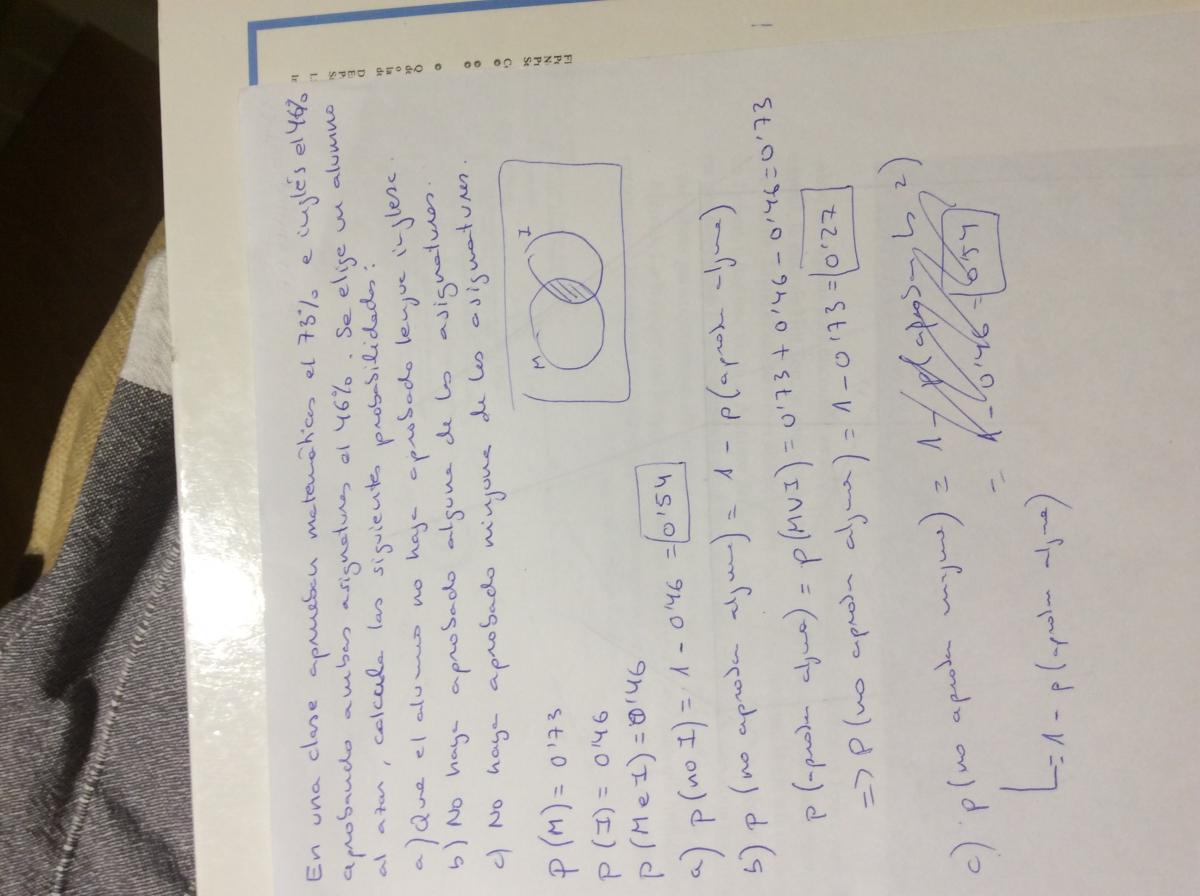 En una clase aprueban matemáticas el 73% e inglés el 46%
aprobando ambas asignaturas el 46%. Se elige un alumno
al azar, calcula las siguientes probabilidades:
a) Que el alumno no haya aprobado lengua inglesa.
b) No haya aprobado alguna de las asignaturas.
c) No haya aprobado ninguna de las asignaturas.
M I
P(M) = 0'73
P(I) = 0'46
P(M e I) = 0'46
a) P(no I) = 1 - 0'46 = 0'54
b) P(no aprobar alguna) = 1 - P(aprobar alguna)
P(aprobar alguna) = P(MUI) = 0'73 + 0'46 - 0'46 = 0'73
=> P(no aprobar alguna) = 1 - 0'73 = 0'27
c) P(no aprobar ninguna) = 1 - P(aprobar las 2)
= 1 - 0'46 = 0'54
= 1 - P(aprobar alguna)